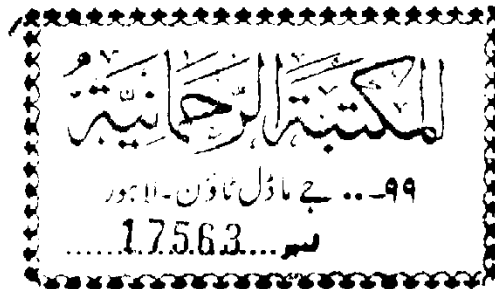 المكتبة الرحمانية
۹۹ـ.. جے ماڈل ٹاؤن۔لاہور
نمبر....17563......